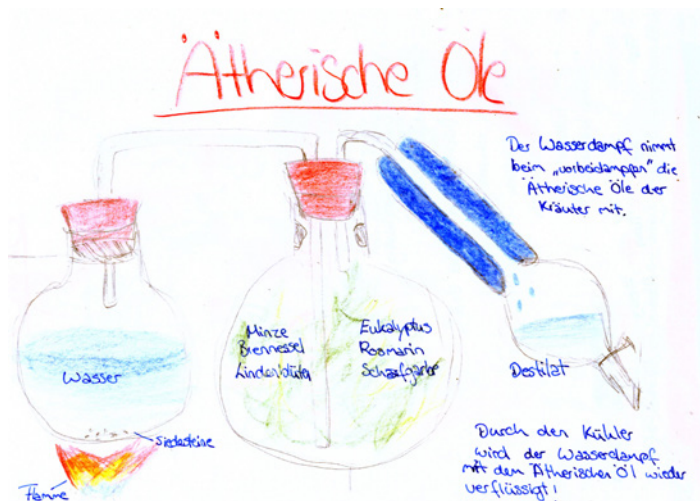 Ätherische Öle
Der Wasserdampf nimmt
beim „vorbeidampfen" die
Ätherische Öle der
Kräuter mit.
Wasser
Siedesteine
Flamme
Minze
Brennessel
Lindenblüte
Eukalyptus
Rosmarin
Schaafgarbe
Destilat
Durch den Kühler
wird der Wasserdampf
mit dem Ätherischen Öl wieder
verflüssigt!